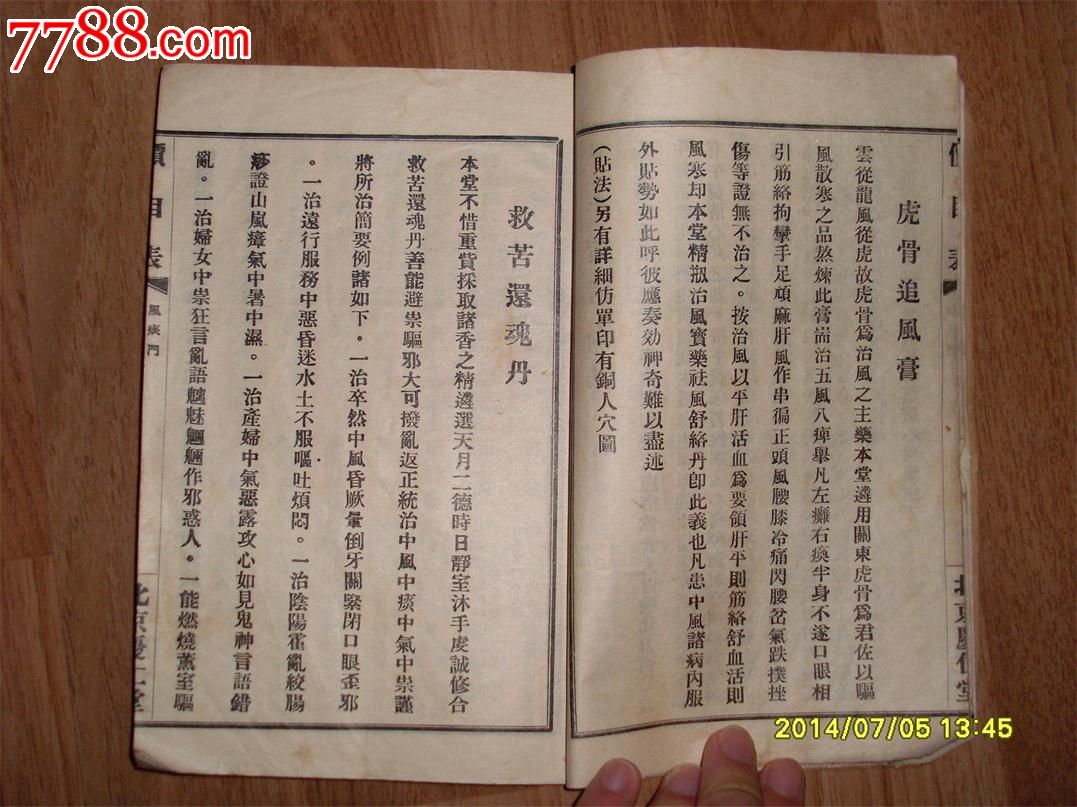 7788.com
虎骨追風膏
雲從龍風從虎故虎骨爲治風之主藥本堂遴用關東虎骨爲君佐以驅
風散寒之品熬煉此膏耑治五風八痺舉凡左癱右瘓半身不遂口眼相
引筋絡拘攣手足頑麻肝風作串徧正頭風腰膝冷痛閃腰岔氣跌撲挫
傷等證無不治之。按治風以平肝活血爲要領肝平則筋絡舒血活則
風寒却本堂精製治風寳藥祛風舒絡丹卽此義也凡患中風諸病內服
外貼勢如此呼彼應奏効神奇難以盡述
(貼法)另有詳細仿單印有銅人穴圖
救苦還魂丹
本堂不惜重貲採取諸香之精遴選天月二德時日靜室沐手虔誠修合
救苦還魂丹善能避祟驅邪大可撥亂返正統治中風中痰中氣中祟謹
將所治簡要例諸如下。一治卒然中風昏厥暈倒牙關緊閉口眼歪邪
。一治遠行服務中惡昏迷水土不服嘔吐煩悶。一治陰陽霍亂絞腸
痧證山嵐瘴氣中暑中濕。一治產婦中氣惡露攻心如見鬼神言語錯
亂。一治婦女中祟狂言亂語魑魅魍魎作邪惑人。一能燃燒薰室驅
價目表
風痰門
北京慶仁堂
2014/07/05 13:45